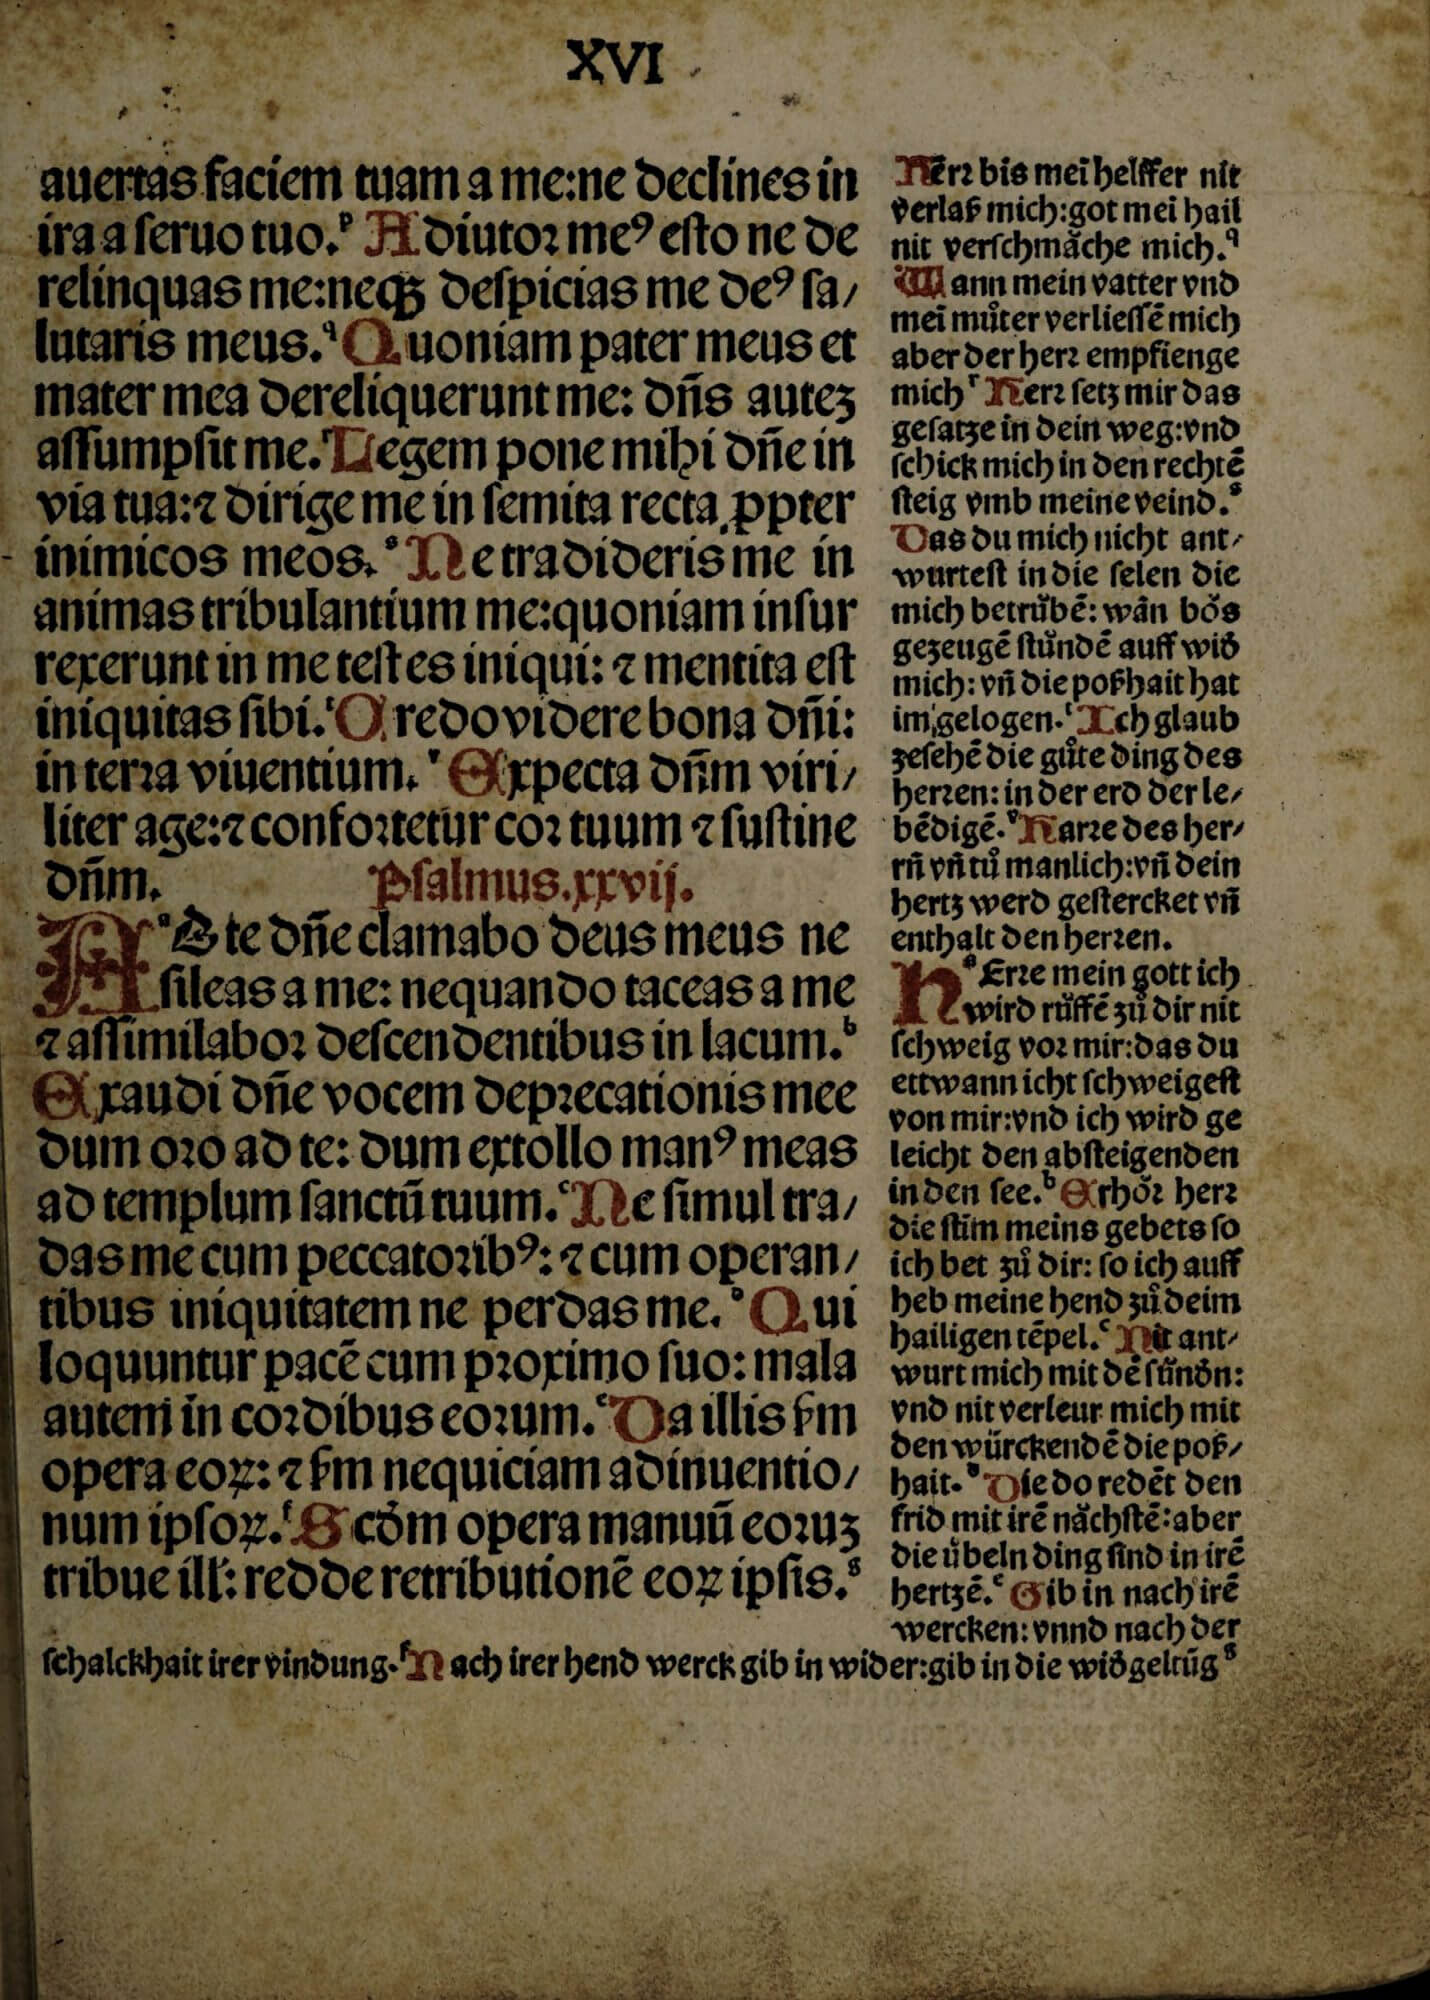 XVI
auertas faciem tuam a me:ne declines in
ira a ſeruo tuo.ᵖ Adiutoꝛ meꝰ eſto ne de
relinquas me:neqꝫ deſpicias me deꝰ ſa/
lutaris meus.ᑫ Quoniam pater meus et
mater mea dereliquerunt me: dn̄s auteꝫ
aſſumpſit me.ʳ Legem pone mihi dn̄e in
via tua:⁊ dirige me in ſemita recta ꝓpter
inimicos meos.ˢ Ne tradideris me in
animas tribulantium me:quoniam inſur
rexerunt in me teſtes iniqui: ⁊ mentita eſt
iniquitas ſibi.ᵗ Credo videre bona dn̄i:
in terꝛa viuentium.ᵛ Expecta dn̄m viri/
liter age:⁊ confoꝛtetur coꝛ tuum ⁊ ſuſtine
dn̄m. Pſalmus.xxvij.
Aᵃd te dn̄e clamabo deus meus ne
ſileas a me: nequando taceas a me
⁊ aſſimilaboꝛ deſcendentibus in lacum.ᵇ
Exaudi dn̄e vocem depꝛecationis mee
dum oꝛo ad te: dum extollo manꝰ meas
ad templum ſanctū tuum.ᶜ Ne ſimul tra/
das me cum peccatoꝛibꝰ: ⁊ cum operan/
tibus iniquitatem ne perdas me.ᵈ Qui
loquuntur pacē cum pꝛoximo ſuo: mala
autem in coꝛdibus eoꝛum.ᵉ Da illis ẜm
opera eoꝝ: ⁊ ẜm nequiciam adinuentio/
num ipſoꝝ.ᶠ Scd̓m opera manuū eoꝛuꝫ
tribue ill̓: redde retributionē eoꝝ ipſis.ᵍ
Hērꝛ bis mei̅ helffer nit
verlaß mich:got mei hail
nit verſchmaͤche mich.ᑫ
Wann mein vatter vnd
mei̅ muͦter verlieſſē mich
aber der herꝛ empfienge
michʳ Herꝛ ſetz mir das
geſatze in dein weg:vnd
ſchick mich in den rechtē
ſteig vmb meine veind.ˢ
Das du mich nicht ant/
wurteſt in die ſelen die
mich betruͤbē: wān boͤs
gezeugē ſtuͤndē auff wid̓
mich: vn̄ die poßhait hat
im gelogen.ᵗ Ich glaub
zeſehē die guͦte ding des
herꝛen: in der erd der le/
bēdigē.ᵛ Harꝛe des her/
rn̄ vn̄ tuͦ manlich:vn̄ dein
hertz werd geſtercket vn̄
enthalt den herꝛen.
HᵃErꝛe mein gott ich
wird ruͤffē zuͦ dir nit
ſchweig voꝛ mir:das du
ettwann icht ſchweigeſt
von mir:vnd ich wird ge
leicht den abſteigenden
in den ſee.ᵇ Erhoͤꝛ herꝛ
die ſtim̄ meins gebets ſo
ich bet zuͦ dir: ſo ich auff
heb meine hend zuͦ deim
hailigen tēpel.ᶜ Nit ant/
wurt mich mit dē ſünd̓n:
vnd nit verleur mich mit
den würckendē die poß/
hait.ᵈ Die do redēt den
frid mit irē naͤchſtē:aber
die uͤbeln ding ſind in irē
hertzē.ᵉ Gib in nach irē
wercken: vnnd nach der
ſchalckhait irer vindung.ᶠ Nach irer hend werck gib in wider:gib in die wid̓geltūgᵍ